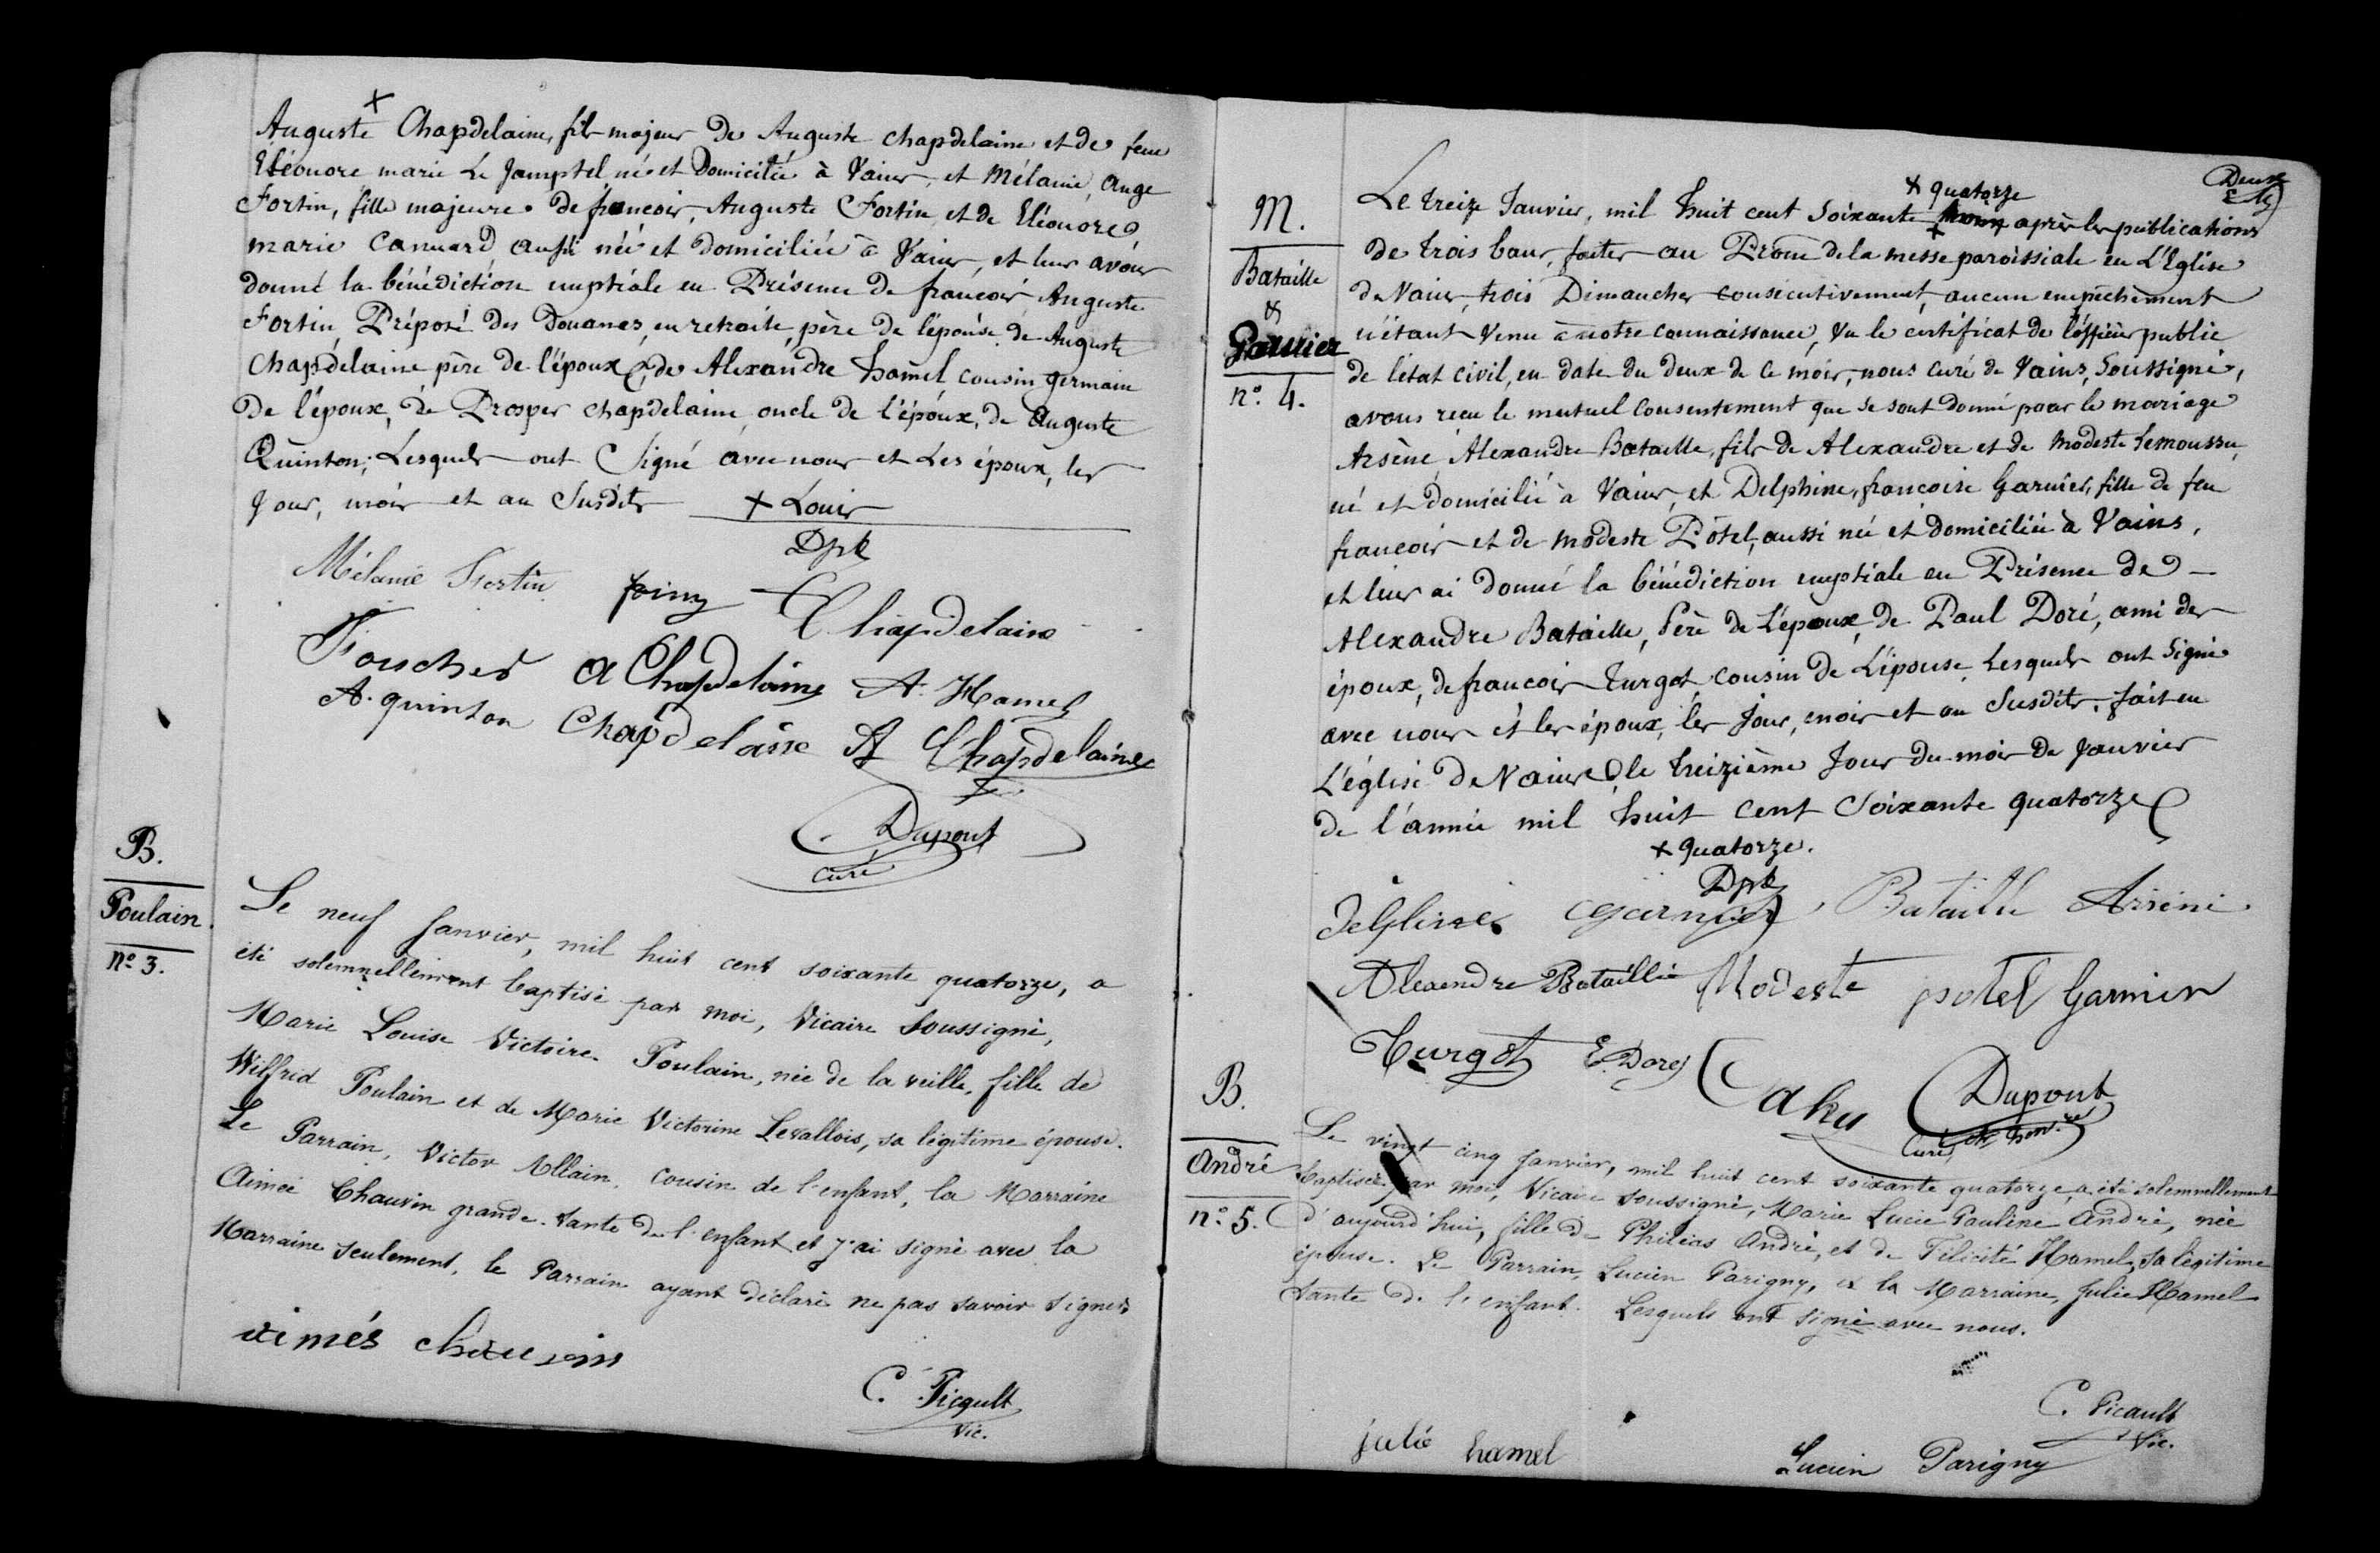 Auguste + Chapdelaine, fils majeur de Auguste chapdelaine et de feue
Eléonore marie Le Jamptel né et Domicilié à Vains, et Mélanie, ange
Fortin, fille majeure de francois, Auguste Fortin et de Eléonore
marie Canuard aussi née et domiciliée à Vains, et leur avons
donné la bénédiction nuptiale en Présence de francois Auguste
Fortin, Préposé des Douanes, en retraite, père de l'épouse, de Auguste
Chapdelaine père de l'époux, de Alexandre hamel cousin germain
de l'époux, de Prosper chapdelaine, oncle de l'époux, de Auguste
Quinton; Lesquels ont Signé avec nous et Les époux, les
Jour, mois et an Susdits + Louis
Dpt
Mélanie Fortin Chapdelaine
A Chapdelaine A. Hamel
A. quinton Chapdelaine A Chapdelaine
Dupont
curé
B.
Poulain.
nº 3.
Le neuf Janvier, mil huit cent soixante quatorze, a
été solemnellement baptisé par moi, Vicaire Soussigné,
Marie Louise Victoire Poulain, née de la veille, fille de
Wilfrid Poulain et de Marie Victorine Levallois, sa légitime épouse.
Le Parrain, Victor Allain, cousin de l'enfant, la Marraine
Aimée Chauvin grande-tante de l'enfant et j'ai signé avec la
Marraine seulement, le Parrain ayant déclaré ne pas savoir signer
aimés chauvin
C. Picault
Vic.
Deux
M.
Bataille
&
Garnier
nº. 4.
+ quatorze
Le treize Janvier, mil huit cent Soixante + après les publications
de trois bans, faites au Prône de la messe paroissiale en L'Eglise
de Vains, trois Dimanches consécutivement, aucun empêchement
n'étant venu à notre connaissance, Vu le certificat de l'officier public
de l'état civil, en date du deux de ce mois, nous Curé de Vains, Soussigné,
avons recu le mutuel Consentement que se sont donné pour le mariage
Arsène, Alexandre Bataille, fils de Alexandre et de Modeste Lemoussu,
né et domicilié à Vains, et Delphine, francoise Garnier, fille de feu
francois et de Modeste Pôtel, aussi née et domiciliée à Vains,
et leur ai donné la bénédiction nuptiale en Présence de
Alexandre Bataille, Père de L'époux, de Paul Doré, ami des
époux, de francois Turgot cousin de L'épouse, Lesquels ont Signé
avec nous et les époux, les Jour, mois et an Susdits, fait en
L'église de Vains, le treizième Jour du mois de Janvier
de l'année mil huit cent Soixante quatorze
+ quatorze.
Dpt
Delphine Garnier, Bataille Arsène.
Alexendre Bataillie Modeste potel Garnier
Turgot E. Dorey Cahu Dupont
Curé
B.
André
nº. 5.
Le vingt cinq Janvier, mil huit cent soixante quatorze, a été solemnellement
baptisée par moi, Vicaire soussigné, Marie Lucie Pauline André, née
d'aujourd'hui, fille de Philéas André, et de Félicité Hamel, sa légitime
épouse. Le Parrain, Lucien Parigny, et la Marraine, Julie Hamel
tante de l'enfant. Lesquels ont signé avec nous.
C. Picault
Vic.
julie hamel Lucien Parigny